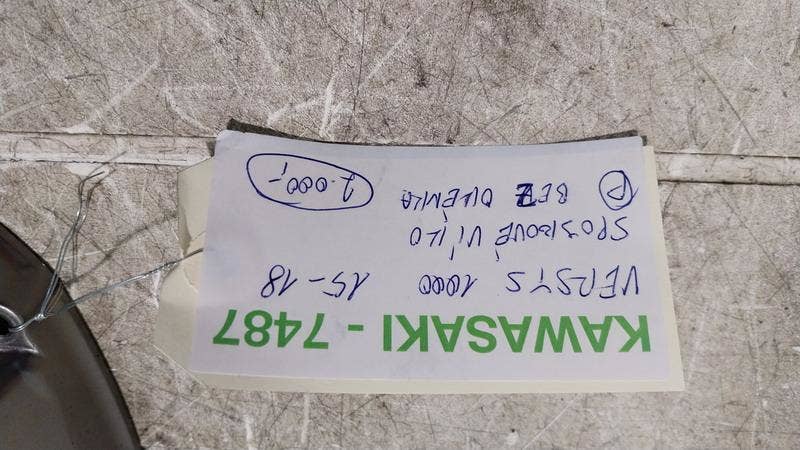 KAWASAKI - 7487
VERSYS 1000 15-18
SPOJKOVÉ VÍKO
Ⓟ BEZ OKÉNKA 2.000,-